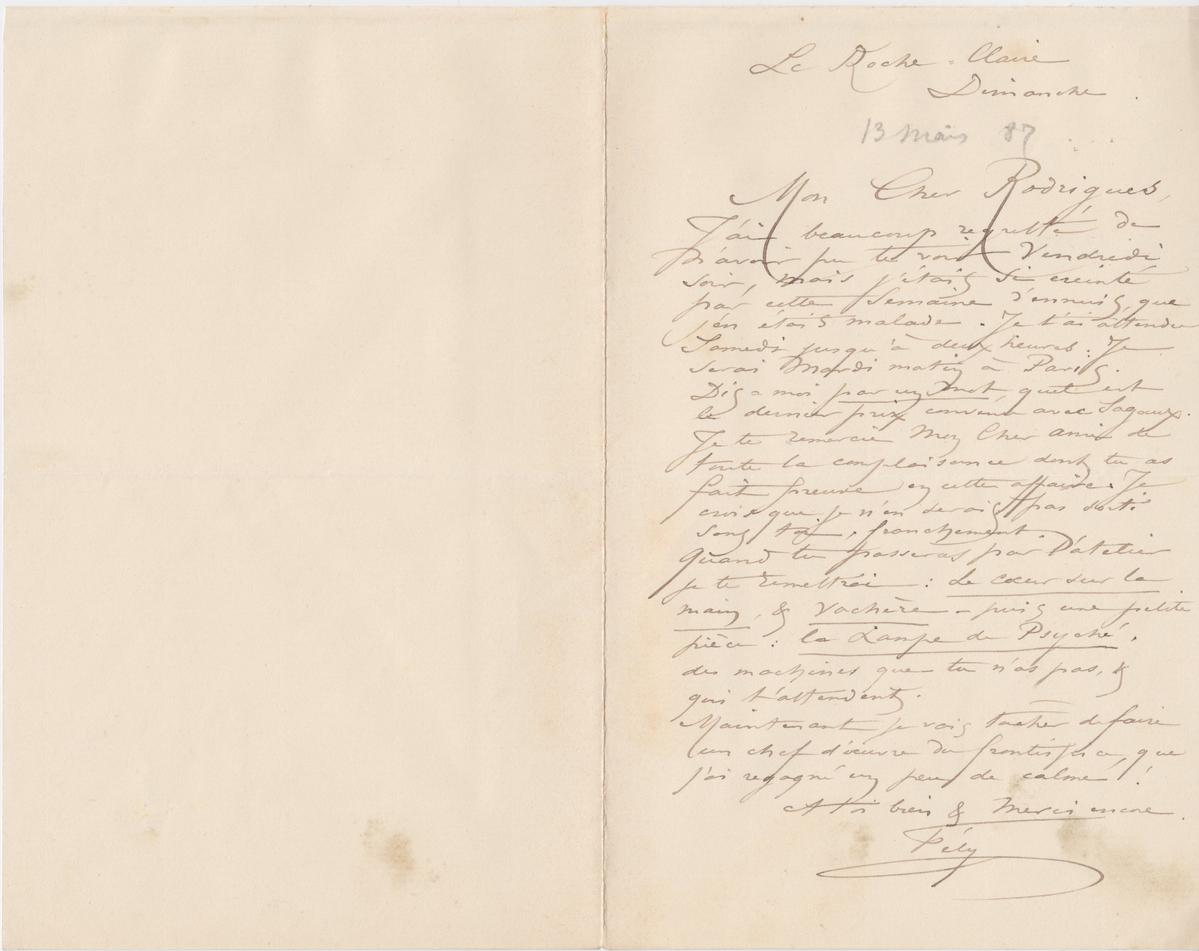 La Roche-Claire
Dimanche.
13 Mars 87
Mon Cher Rodrigues,
J'ai beaucoup regretté de
n'avoir pu te voir Vendredi
soir, mais j'étais si éreinté
par cette Semaine d'ennuis, que
j'en étais malade. Je t'ai attendu
Samedi jusqu'à deux heures. Je
serai Mardi matin à Paris.
Dis-moi par un mot, quel est
le dernier prix convenu avec
Je te remercie Mon Cher ami de
toute la complaisance dont tu as
fait preuve en cette affaire. Je
crois que je n'en serais pas sorti
sans toi, franchement.
Quand tu passeras par l'atelier
je te remettrai : Le cœur sur la
main, & Vachère - puis une petite
pièce : la Lampe de Psyché.
des machines que tu n'as pas, &
qui t'attendent.
Maintenant je vais tacher de faire
un chef d'œuvre du frontispice, que
j'ai regagné un peu de calme !
A toi bien & Merci encore.
Fély